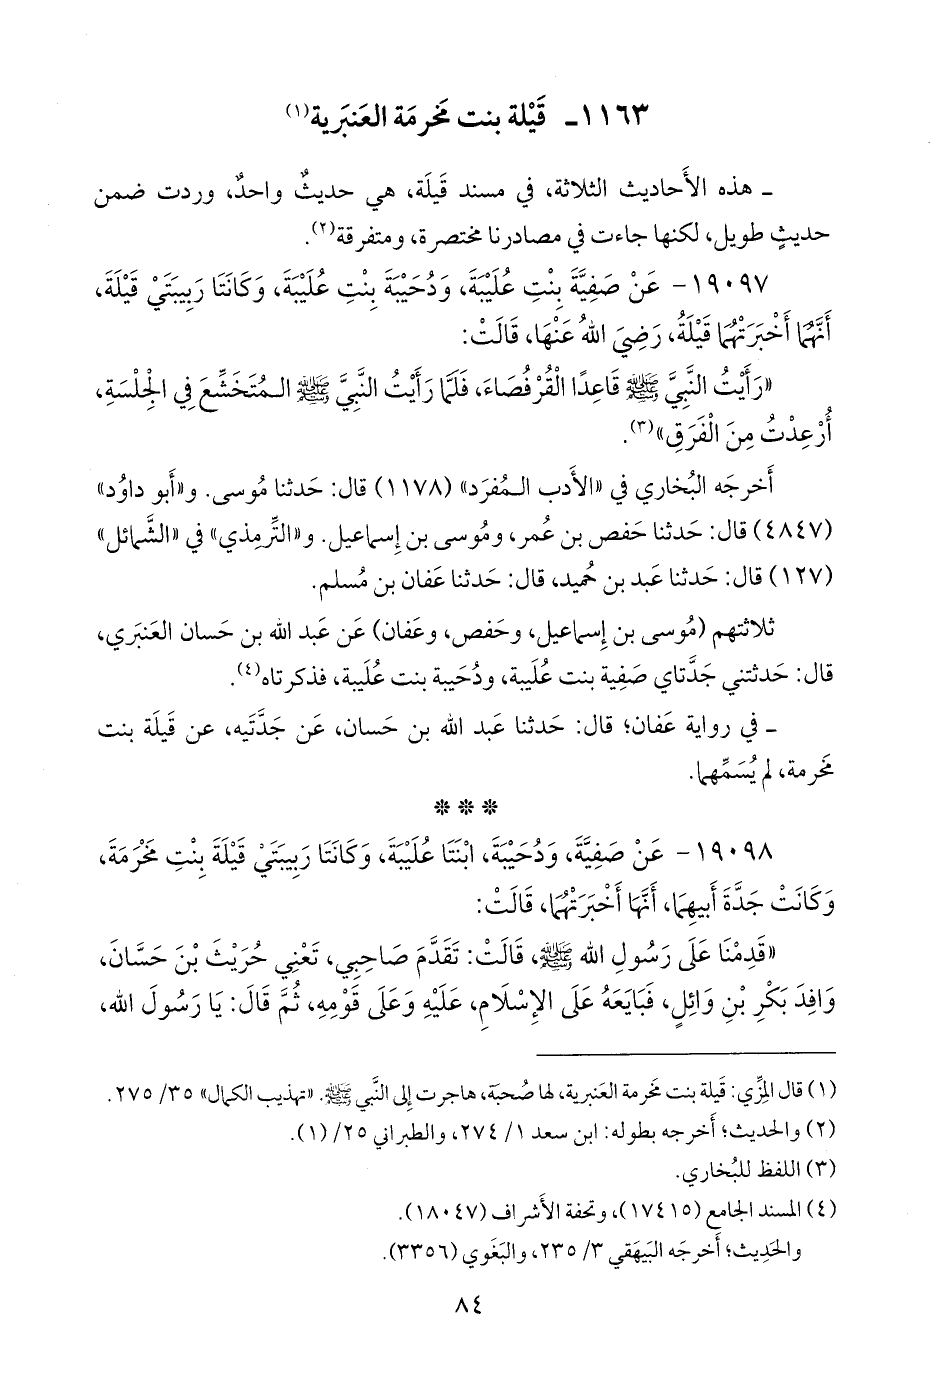 ١١٦٣ـ قَيْلة بنت مَخرمَة العَنبَرية(١)
ـ هذه الأَحاديث الثلاثة، في مسند قَيلَة، هي حديثٌ واحدٌ، وردت ضمن
حديثٍ طويل، لكنها جاءت في مصادرنا مختصرة، ومتفرقة(٢).
١٩٠٩٧ - عَنْ صَفِيَّةَ بِنْتِ عُلَيْبَةَ، وَدُحَيْبَةَ بِنْتِ عُلَيْبَةَ، وَكَانَتَا رَبِيبَتَيْ قَيْلَةَ،
أَنَّهُمَا أَخْبَرَتْهُمَا قَيْلَةُ، رَضِيَ اللهُ عَنْهَا، قَالَتْ:
«رَأَيْتُ النَّبِيَّ ﷺ قَاعِدًا الْقُرْفُصَاءَ، فَلَمَّا رَأَيْتُ النَّبِيَّ ﷺ الـمُتَخَشِّعَ فِي الْجِلْسَةِ،
أُرْعِدْتُ مِنَ الْفَرَقِ»(٣).
أَخرجَه البُخاري في «الأَدب الـمُفرَد» (١١٧٨) قال: حَدثنا مُوسى. و«أَبو داوُد»
(٤٨٤٧) قال: حَدثنا حَفص بن عُمر، ومُوسى بن إِسماعيل. و«التِّرمِذي» في «الشَّمائل»
(١٢٧) قال: حَدثنا عَبد بن حُميد، قال: حَدثنا عَفان بن مُسلم.
ثلاثتهم (مُوسى بن إِسماعيل، وحَفص، وعَفان) عَن عَبد الله بن حَسان العَنبَري،
قال: حَدثتني جَدَّتاي صَفِية بنت عُلَيبة، ودُحَيبة بنت عُلَيبة، فذكرتاه(٤).
ـ في رواية عَفان؛ قال: حَدثنا عَبد الله بن حَسان، عَن جَدَّتَيه، عن قَيلَة بنت
مَخرمة، لم يُسَمِّهما.
* * *
١٩٠٩٨ - عَنْ صَفِيَّةَ، وَدُحَيْبَةَ، ابْنَتَا عُلَيْبَةَ، وَكَانَتَا رَبِيبَتَيْ قَيْلَةَ بِنْتِ مَخْرَمَةَ،
وَكَانَتْ جَدَّةَ أَبِيهِمَا، أَنَّهَا أَخْبَرَتْهُمَا، قَالَتْ:
«قَدِمْنَا عَلَى رَسُولِ الله ﷺ، قَالَتْ: تَقَدَّمَ صَاحِبِي، تَعْنِي حُرَيْثَ بْنَ حَسَّانَ،
وَافِدَ بَكْرِ بْنِ وَائِلٍ، فَبَايَعَهُ عَلَى الإِسْلَامِ، عَلَيْهِ وَعَلَى قَوْمِهِ، ثُمَّ قَالَ: يَا رَسُولَ الله،
(١) قال المِزِّي: قَيلة بنت مَخرمة العَنبرية، لها صُحبَة، هاجرت إِلى النَّبي ﷺ. «تهذيب الكمال» ٣٥/ ٢٧٥.
(٢) والحديث؛ أَخرجه بطوله: ابن سعد ١/ ٢٧٤، والطبراني ٢٥/ (١).
(٣) اللفظ للبُخاري.
(٤) المسند الجامع (١٧٤١٥)، وتحفة الأَشراف (١٨٠٤٧).
والحَدِيث؛ أَخرجَه البَيهَقي ٣/ ٢٣٥، والبَغَوي (٣٣٥٦).
٨٤